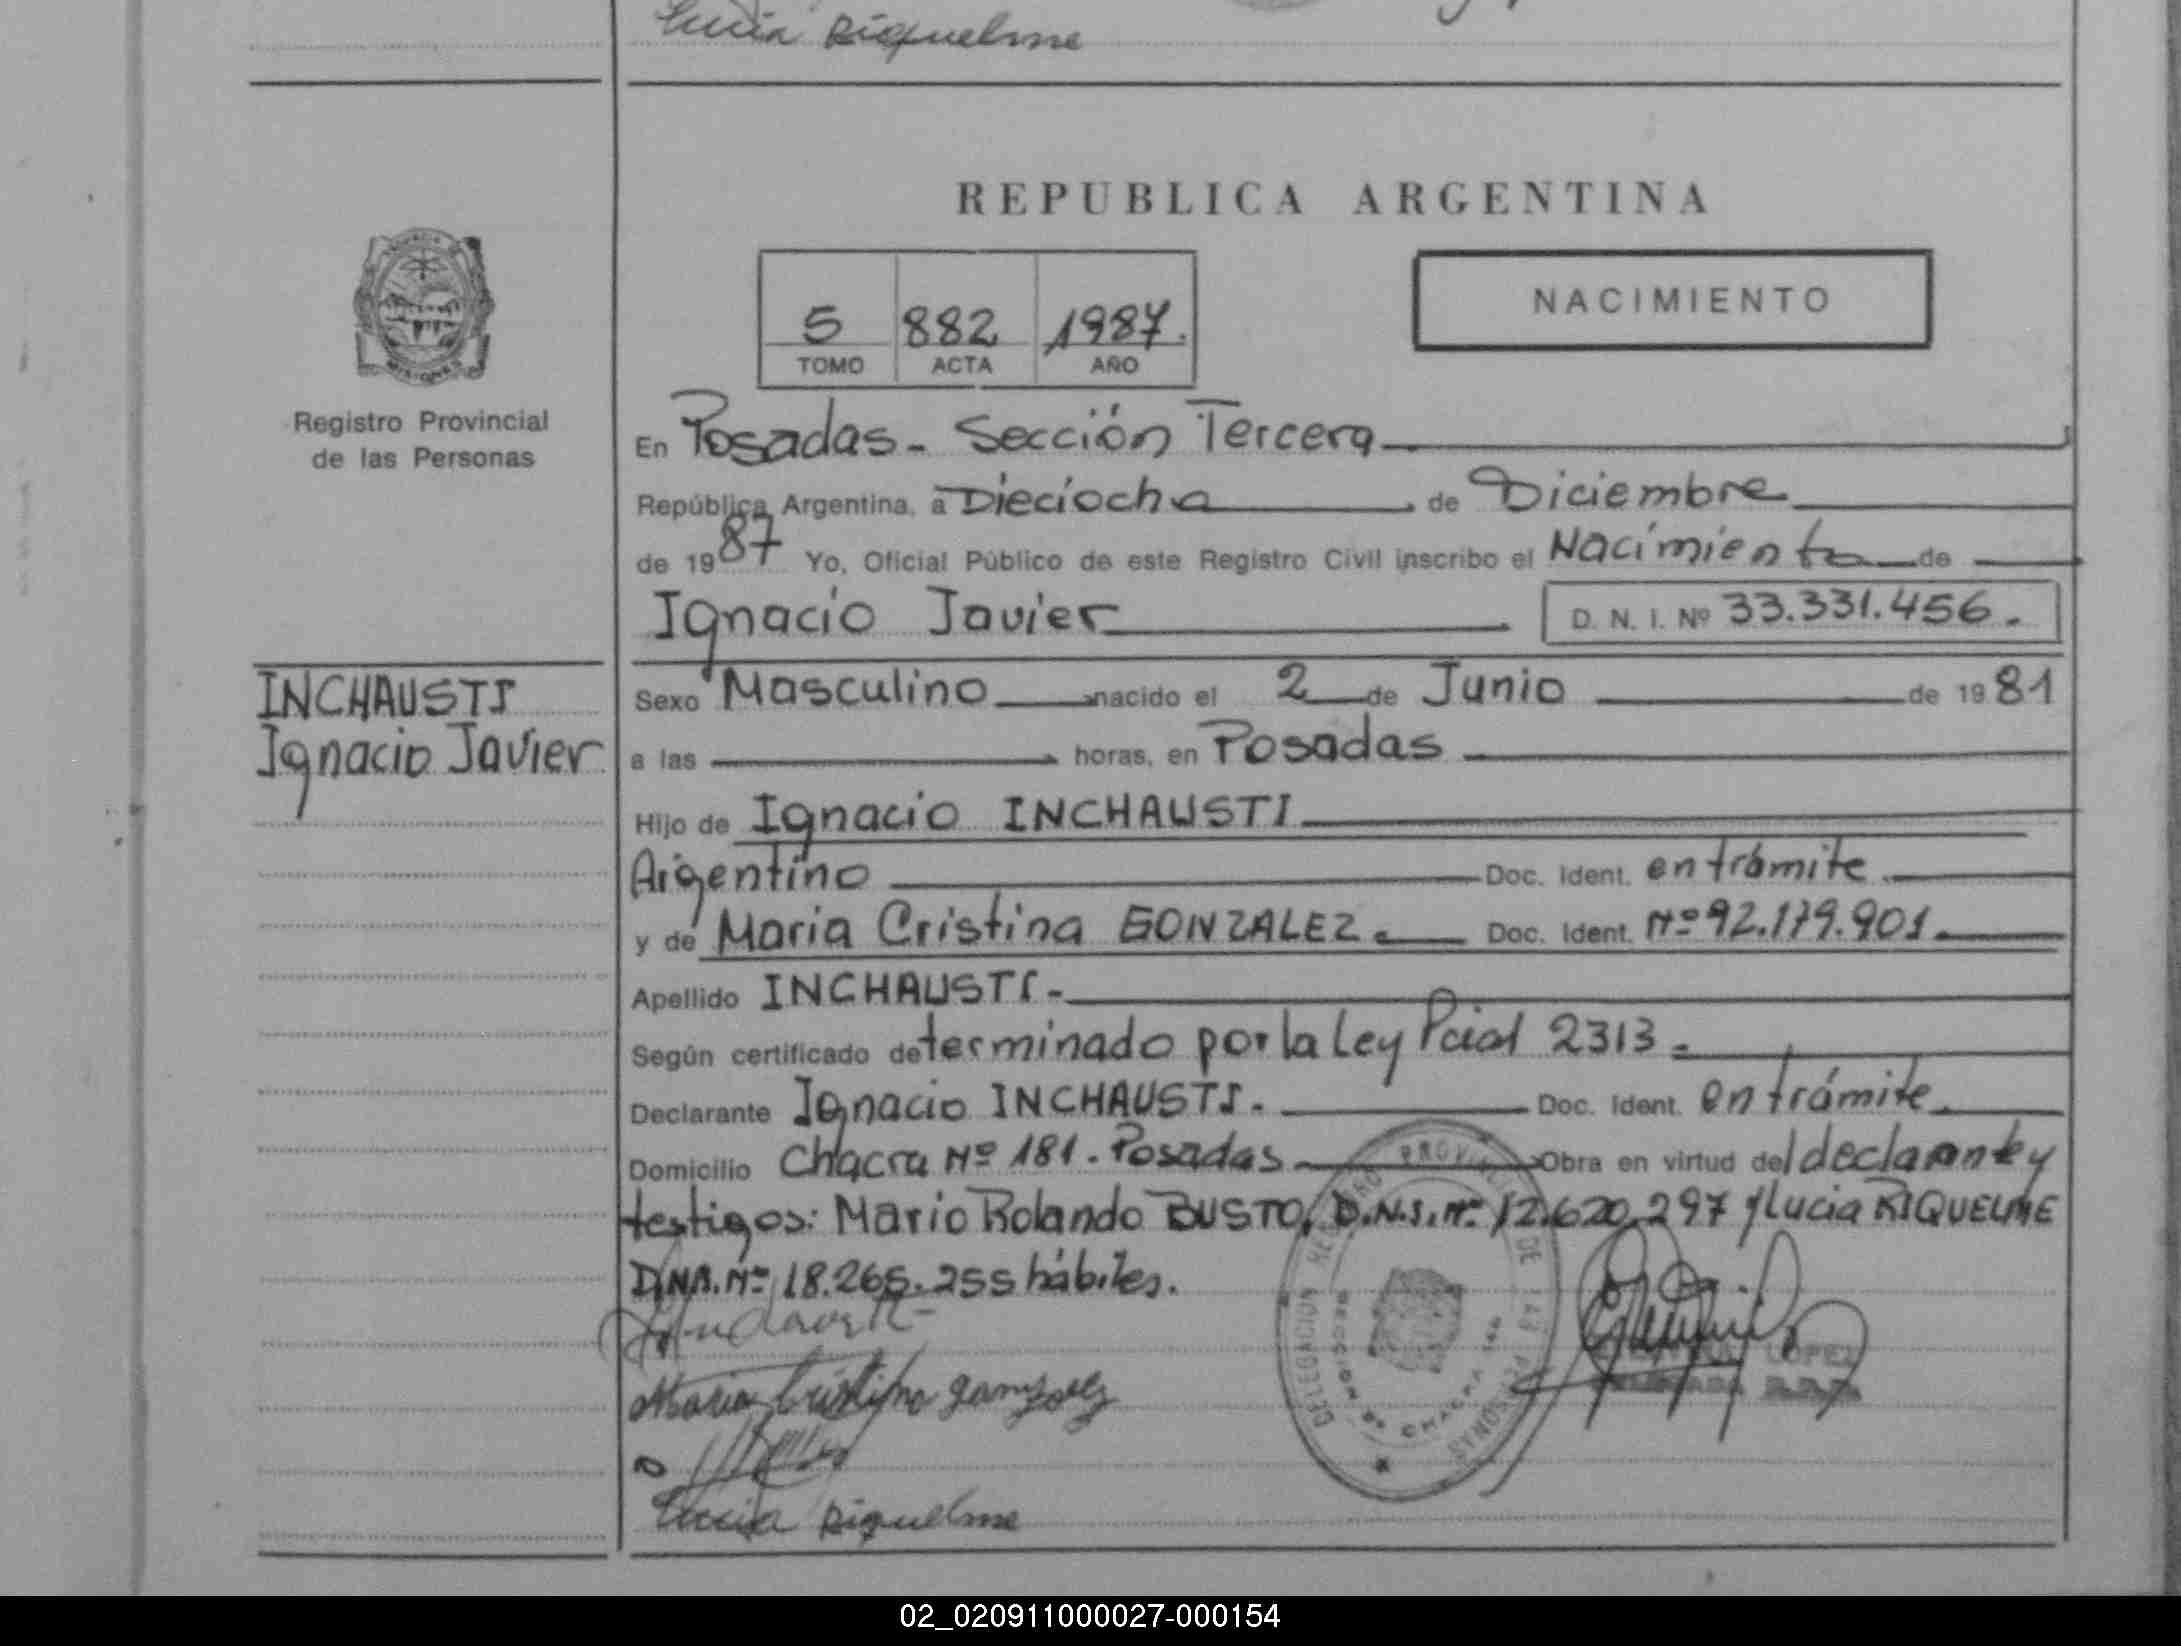 Lucia Riquelme
REPUBLICA ARGENTINA
5 882 1987.
TOMO ACTA AÑO
NACIMIENTO
Registro Provincial
de las Personas
En Posadas - Sección Tercera
República Argentina, a Dieciocho de Diciembre
de 1987 Yo, Oficial Público de este Registro Civil inscribo el Nacimiento de
Ignacio Javier D. N. I. Nº 33.331.456.
INCHAUSTI
Ignacio Javier
Sexo Masculino nacido el 2 de Junio de 1981
a las horas, en Posadas
Hijo de Ignacio INCHAUSTI
Argentino Doc. Ident. en trámite
y de Maria Cristina GONZALEZ. Doc. Ident. Nº 92.179.901.
Apellido INCHAUSTI.-
Según certificado determinado por la Ley Pcial 2313.-
Declarante Ignacio INCHAUSTI. Doc. Ident. en trámite.
Domicilio Chacra Nº 181. Posadas Obra en virtud del declarante y
testigos: Mario Rolando BUSTO, D.N.I. Nº 12.620.297 y Lucia RIQUELME
Nº 18.265.255 hábiles.
Maria Cristina gonzalez
Lucia Riquelme
DELEGACION REGISTRO PROVINCIAL DE LAS PERSONAS
LOPEZ
02_020911000027-000154